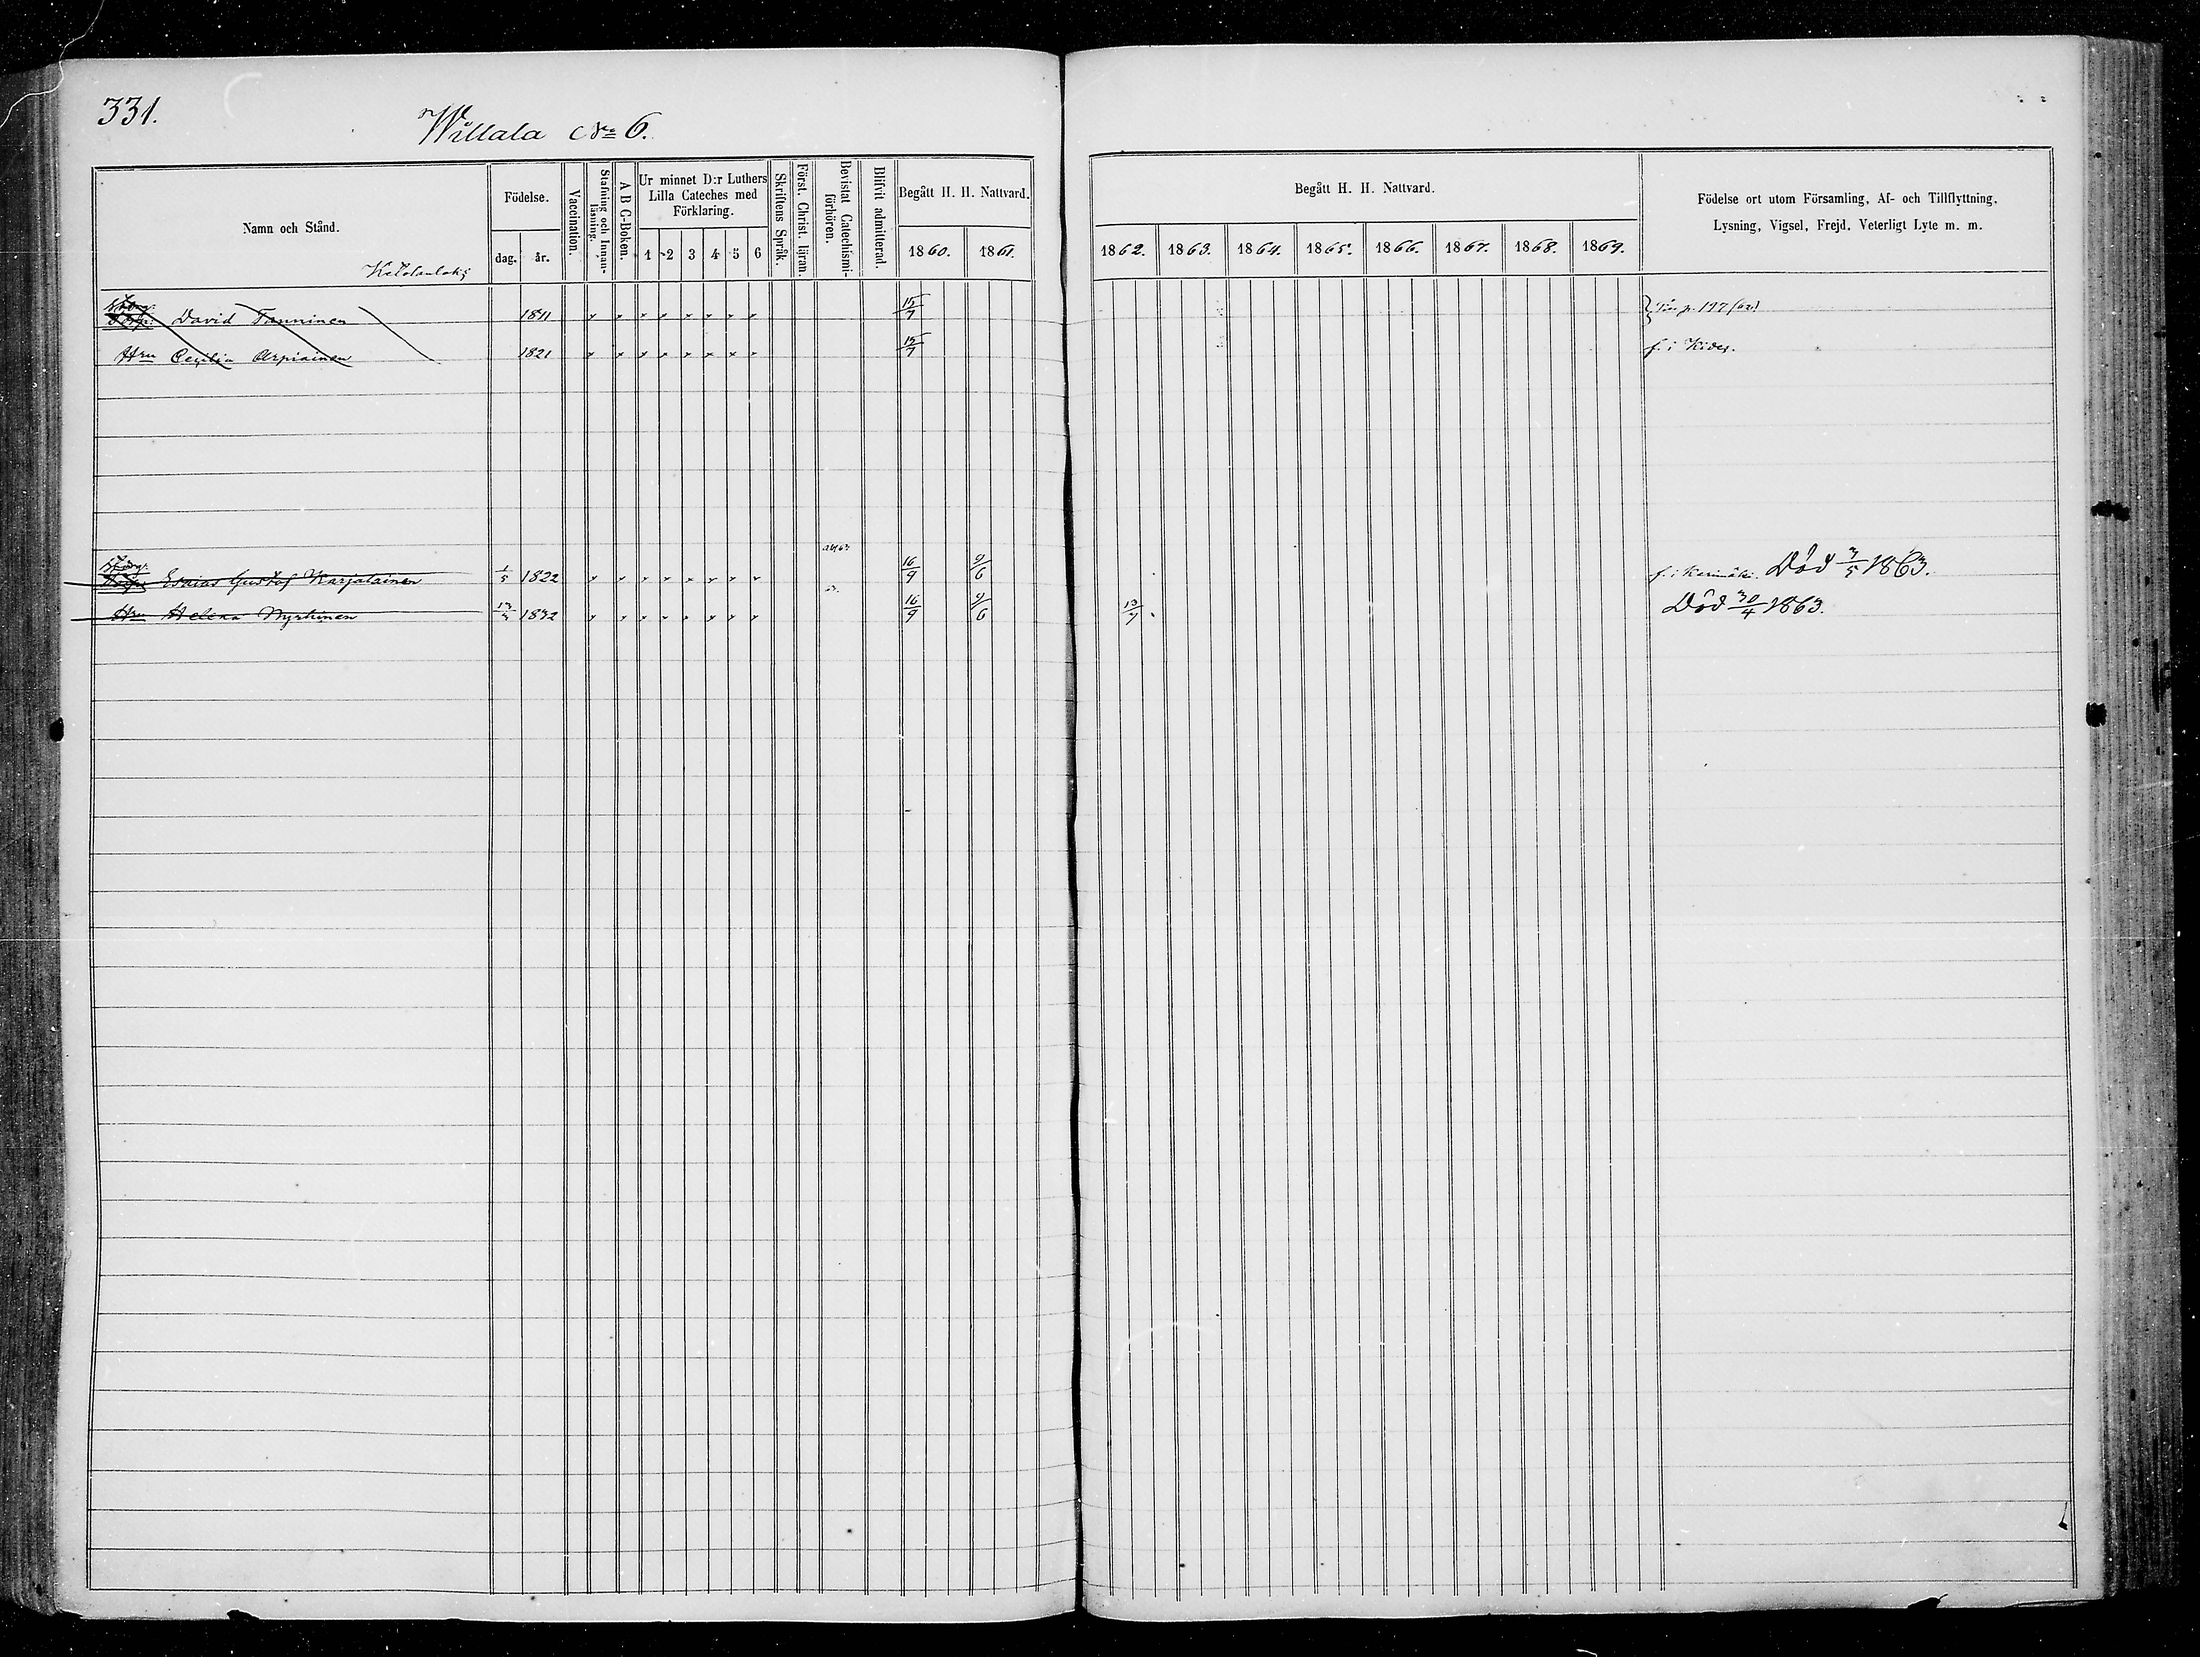 331.
Willala No 6.
Namn och Stånd.
Födelse.
dag.
år.
Vaccination.
Stafning och Innanläsning.
A B C-Boken.
Ur minnet D:r Luthers
Lilla Cateches med
Förklaring.
1 2 3 4 5 6
Skriftens Språk.
Först. Christ. läran.
Bevistat Catechismiförhören.
Blifvit admitterad.
Begått H. H. Nattvard.
1860. 1861.
Begått H. H. Nattvard.
1862. 1863. 1864. 1865. 1866. 1867. 1868. 1869.
Födelse ort utom Församling, Af- och Tillflyttning,
Lysning, Vigsel, Frejd, Veterligt Lyte m. m.
David Tanninen 1811 15/7
Hru Cecilia Arpiainen 1821 15/7 f. i Kides.
Esaias Gustaf Karjalainen 1/5 1822 16/9 9/6 f. i Kerimäki. Död 3/5 1863.
Hru Helena Myrkinen 1832 16/9 9/6 13/7 Död 30/4 1863.